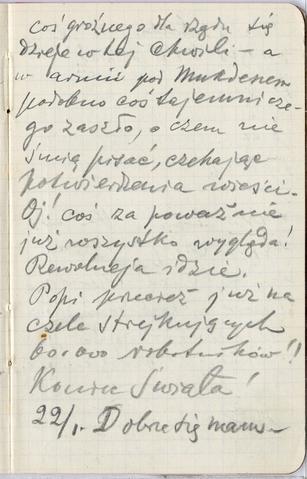 coś groźnego dla rządu się
dzieje w tej chwili – a
w armii pod Mukdenem
podobno coś tajemnicze-
go zaszło, o czem nie
śmią pisać, czekając
potwierdzenia wieści.
Oj! coś za poważnie
już wszystko wygląda!
Rewolucja idzie.
Popi przecież już na
czele strejkujących
60.000 robotników!!
Koniec Świata!
22/1. Dobrze się mam –